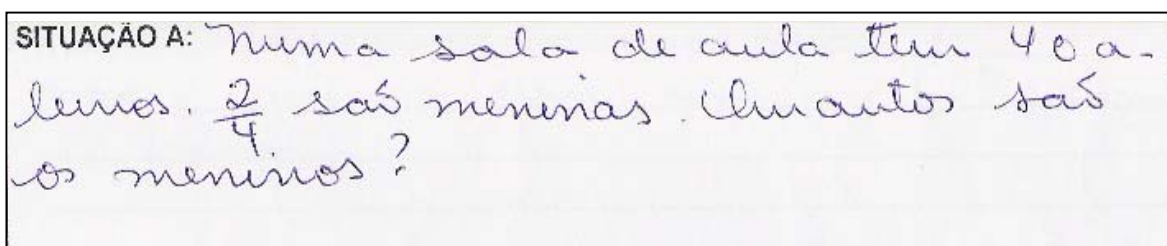 SITUAÇÃO A: Numa sala de aula tem 40 a-
lunos. 2/4 são meninas. Quantos são
os meninos?